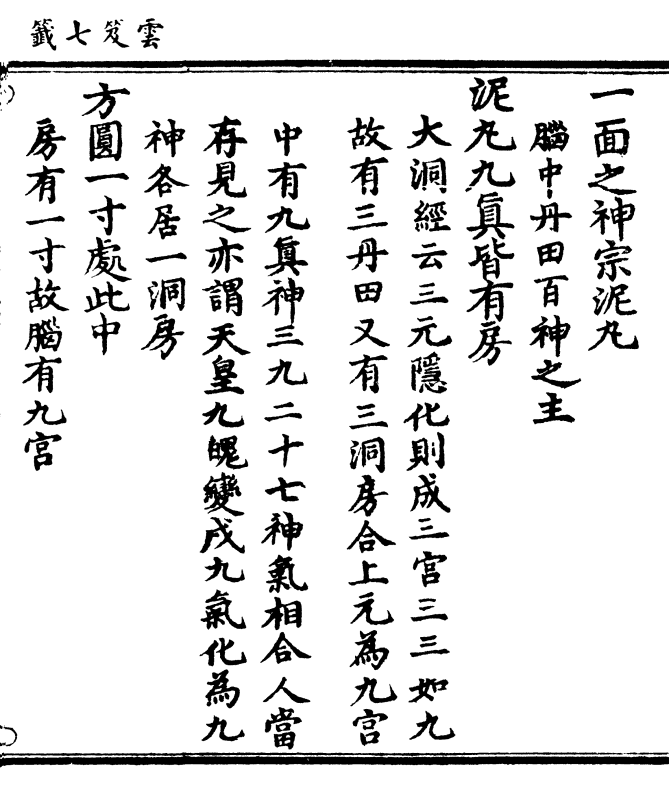 雲笈七籤
一面之神宗泥丸
腦中丹田百神之主
泥丸九眞皆有房
大洞經云三元隱化則成三宮三三如九
故有三丹田又有三洞房合上元為九宮
中有九眞神三九二十七神氣相合人當
存見之亦謂天皇九魄變成九氣化為九
神各居一洞房
方圓一寸處此中
房有一寸故腦有九宮